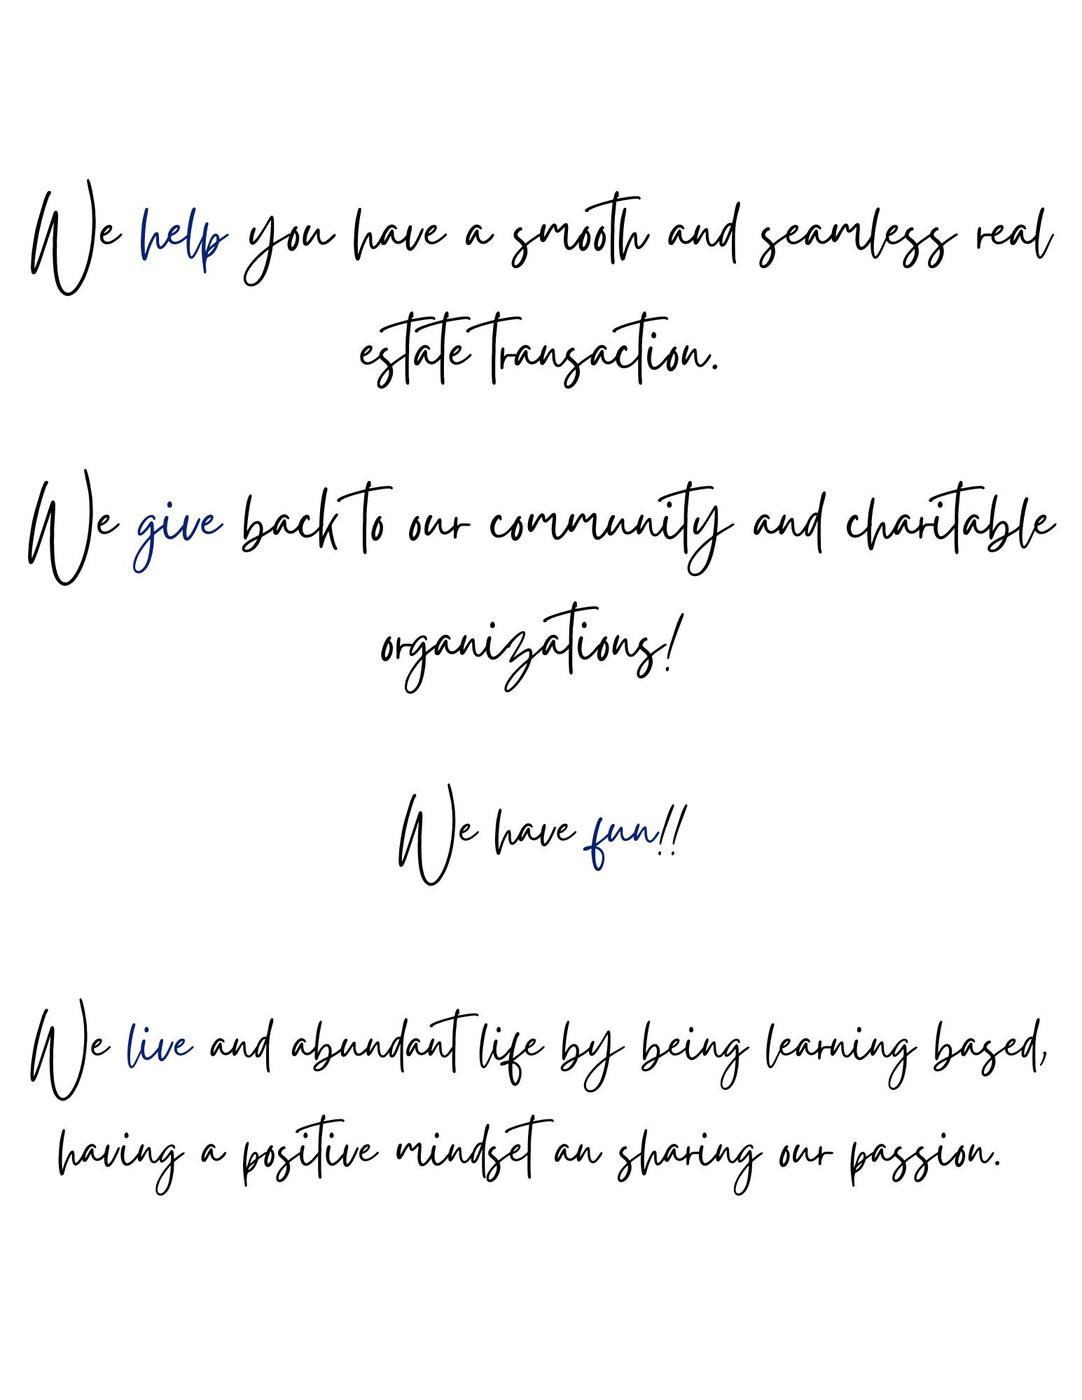 We help you have a smooth and seamless real
estate transaction.
We give back to our community and charitable
organizations!
We have fun!!
We live and abundant life by being learning based,
having a positive mindset an sharing our passion.